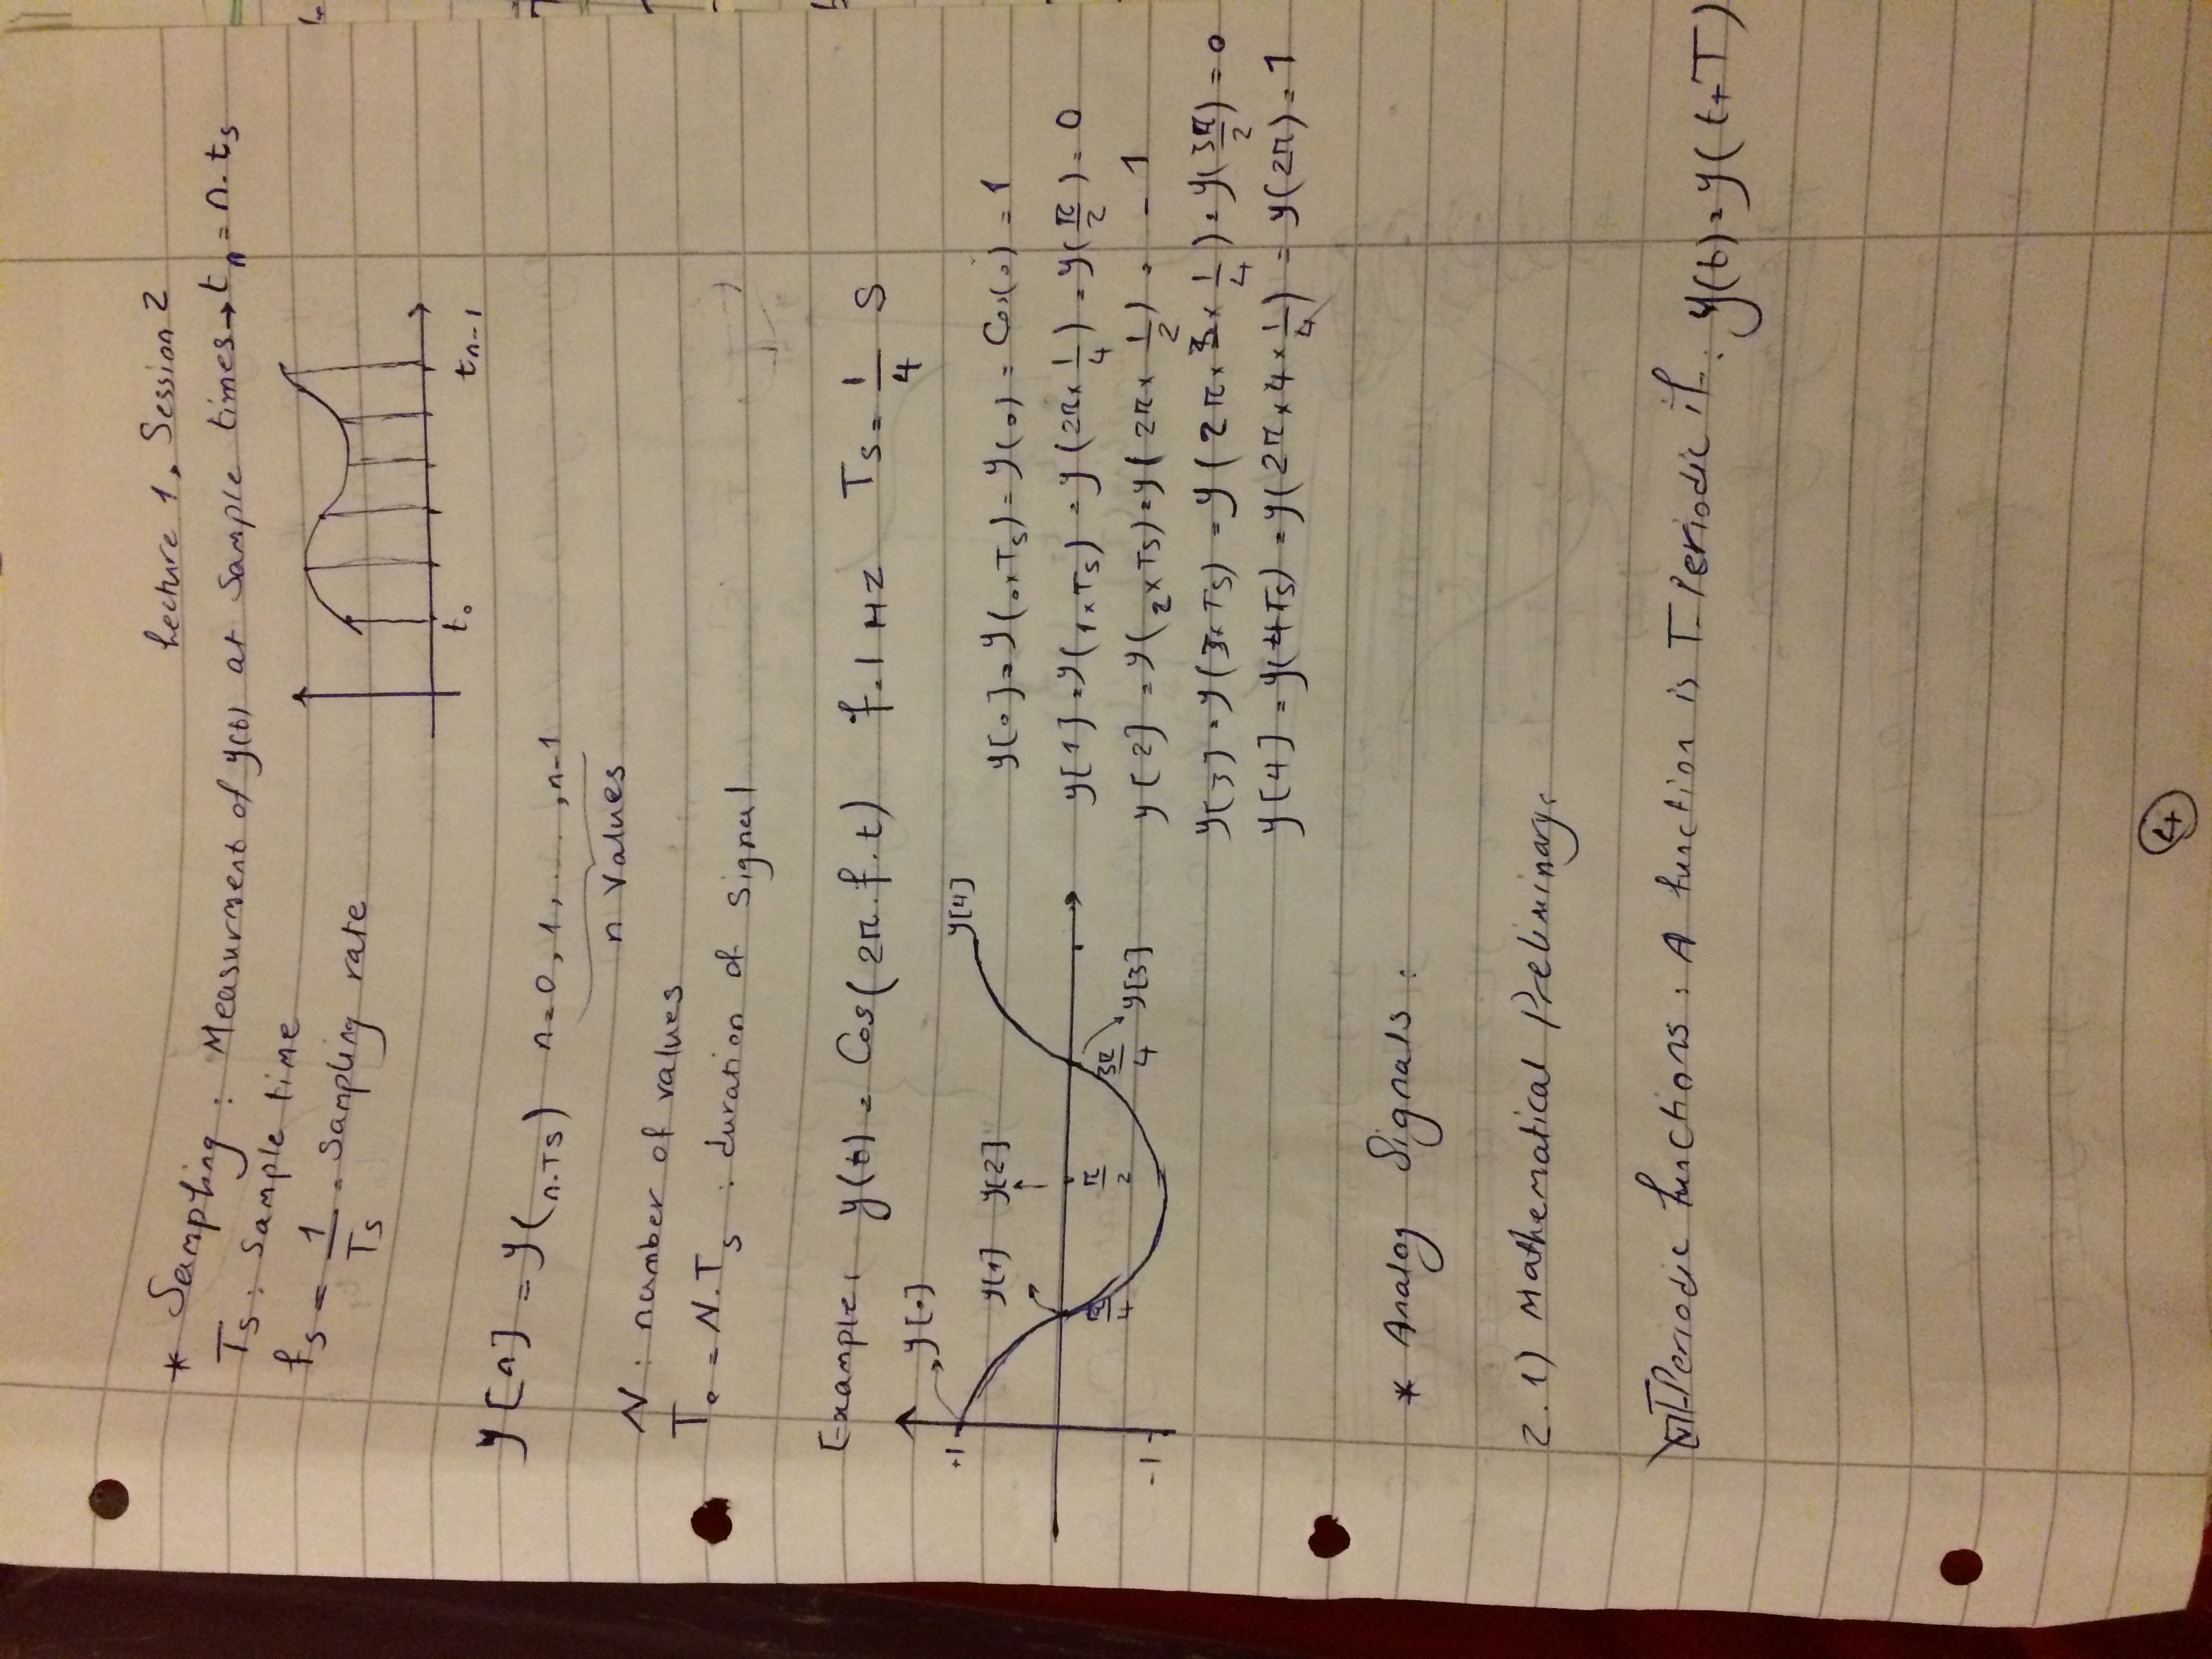 Lecture 1, Session 2
* Sampling : Measurment of y(t) at Sample times → tn = n.ts
Ts : Sample time
fs = 1/Ts = Sampling rate
t0 tn-1
y[n] = y(n.Ts) n=0, 1, ...., n-1
n Values
N : number of values
T0 = N.Ts : duration of signal
Example: y(t) = Cos(2π.f.t) f=1 HZ Ts = 1/4 S
y[0]
+1
y[1] y[2] y[4]
π/4 π/2 3π/4 y[3]
-1
y[0] = y(0×Ts) = y(0) = Cos(0) = 1
y[1] = y(1×Ts) = y(2π×1/4) = y(π/2) = 0
y[2] = y(2×Ts) = y(2π×1/2) = -1
y[3] = y(3×Ts) = y(2π×3×1/4) = y(3π/2) = 0
y[4] = y(4Ts) = y(2π×4×1/4) = y(2π) = 1
* Analog Signals :
2.1) Mathematical Preliminary:
T-Periodic functions : A function is T-Periodic if : y(t) = y(t+T)
4